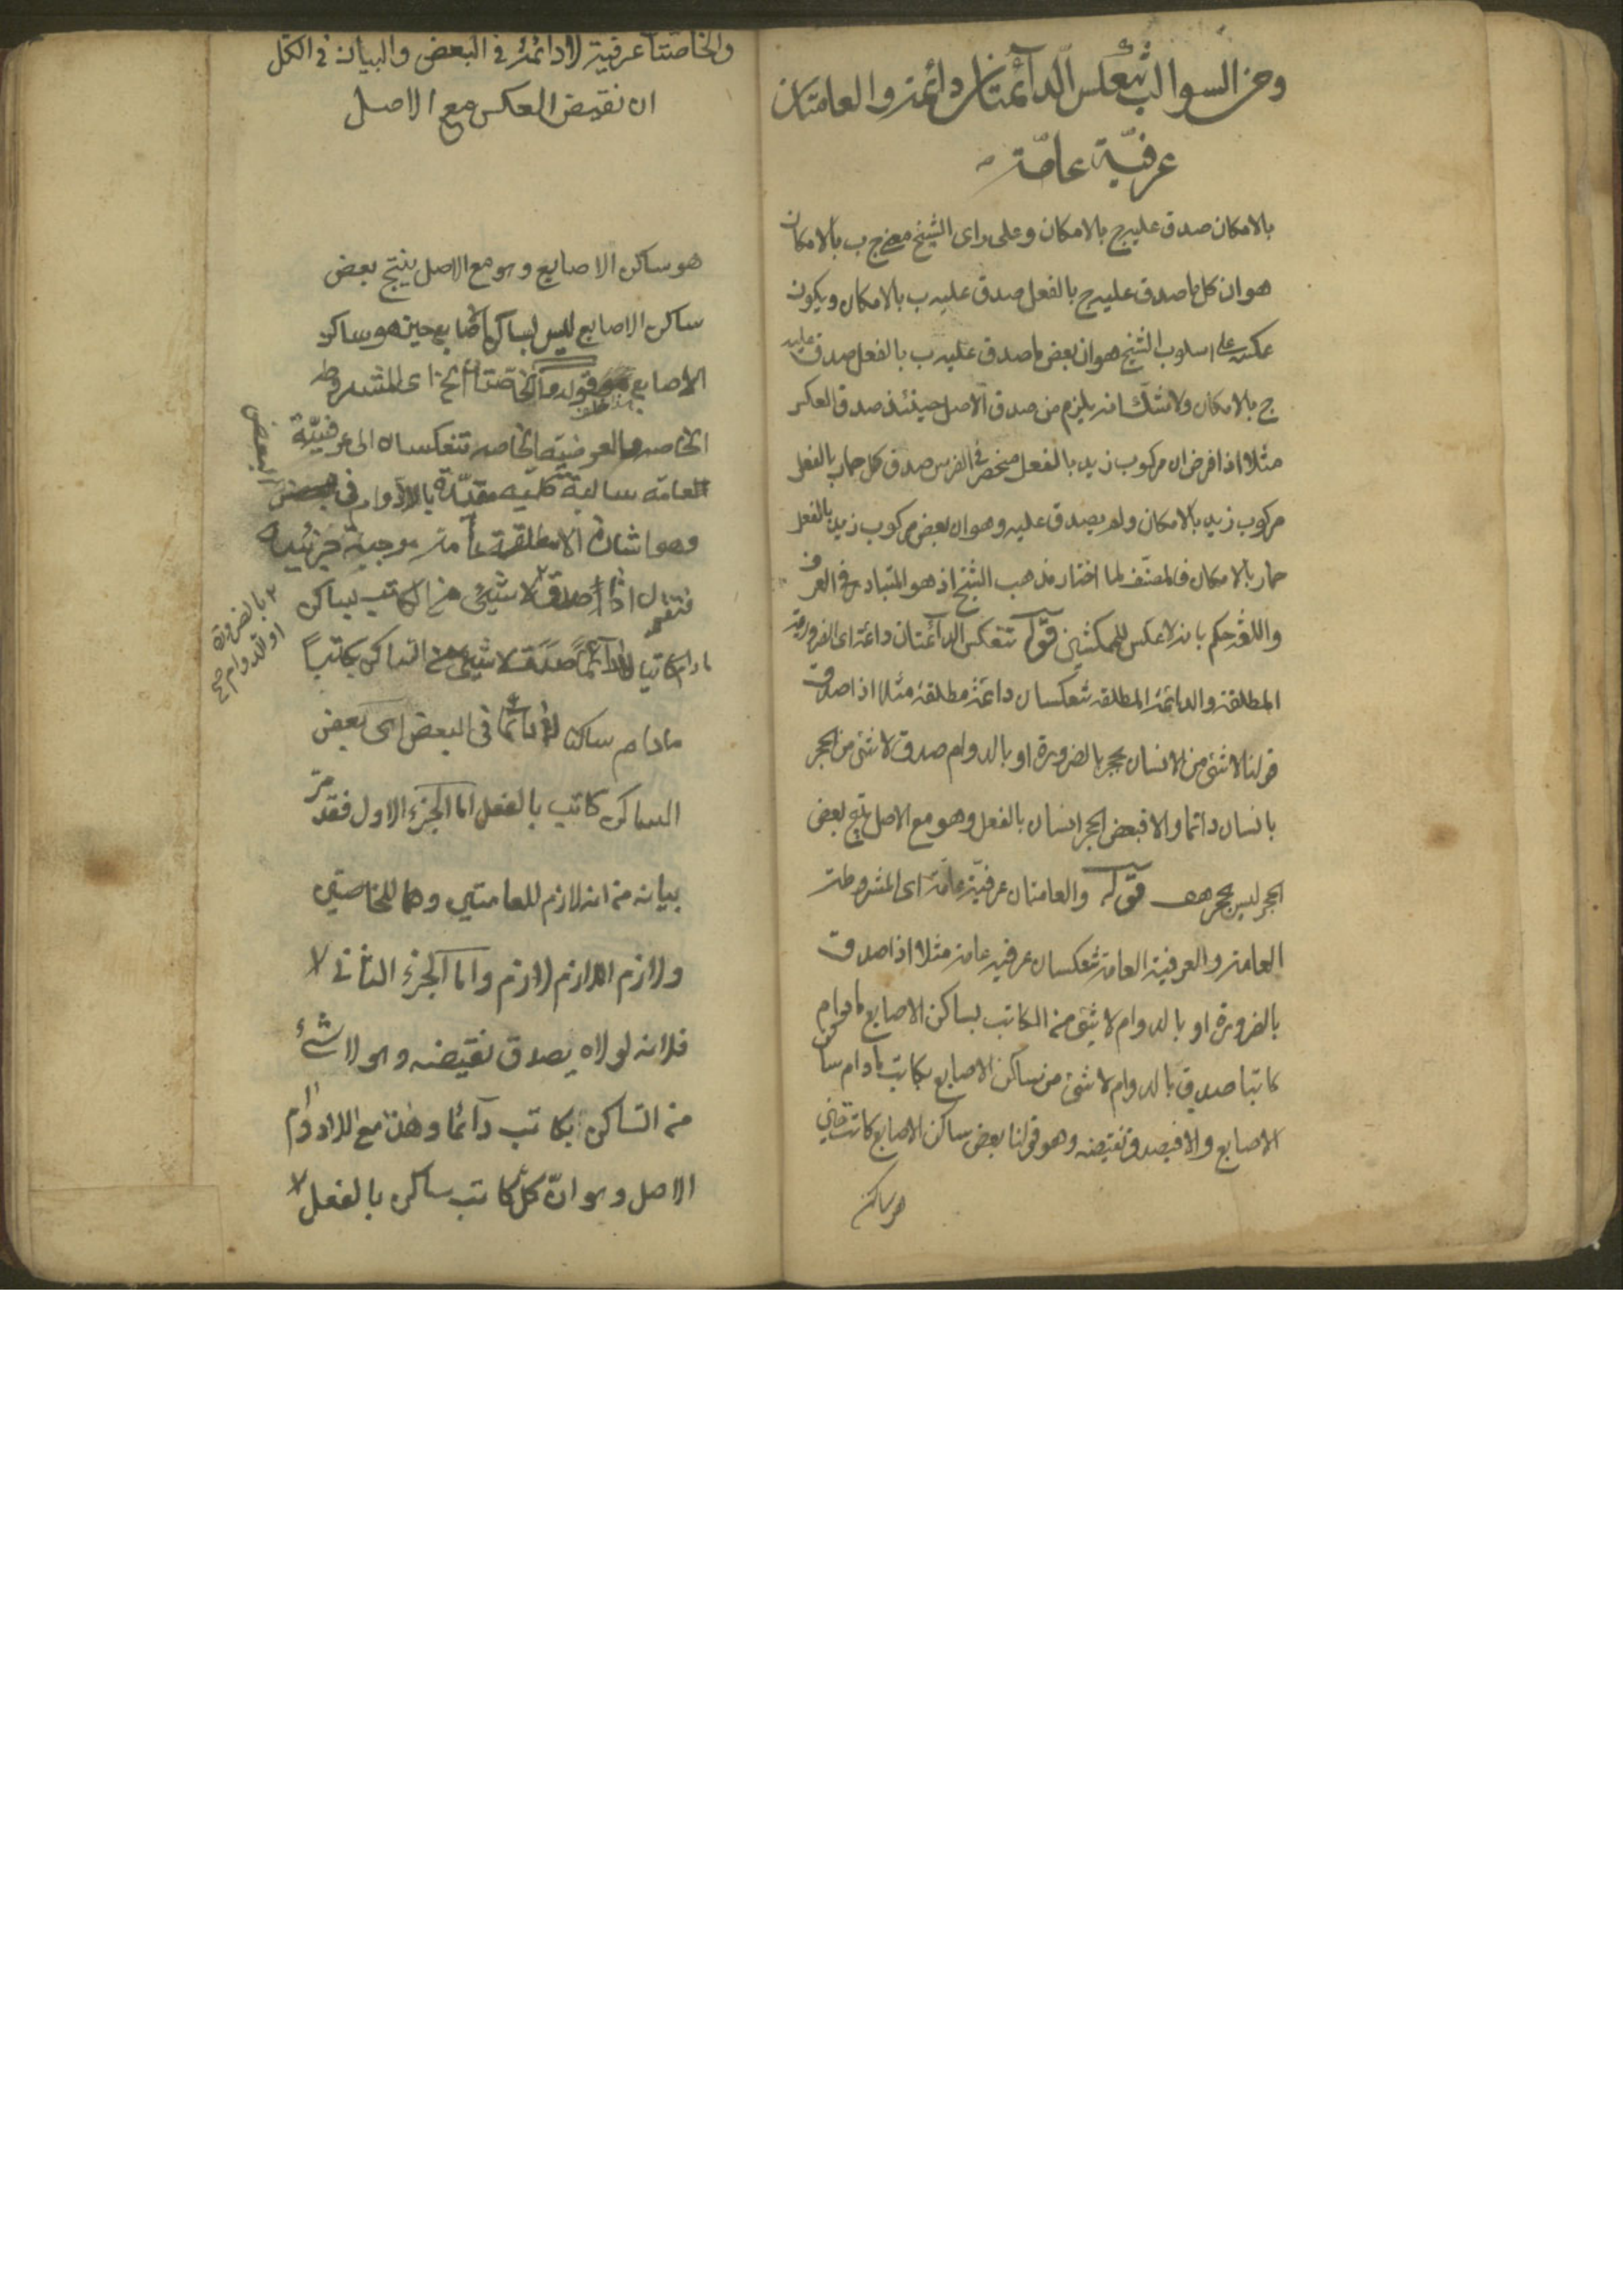 ومن السوالب تنعكس الدآئمتان دائمة والعامتان
عرفيّة عامّة
بالامكان صدق عليه ج بالامكان وعلى راى الشيخ معنى ج ب بالامكان
هو ان كل ما صدق عليه ج بالفعل صدق عليه ب بالامكان ويكون
عكسه على اسلوب الشيخ هو ان بعض ما صدق عليه ب بالفعل صدق عليه
ج بالامكان ولا شك انه يلزم من صدق الاصل حينئذ صدق العكس
مثلا اذا فرض ان مركوب زيد بالفعل منحصر فى الفرس صدق كل حمار بالفعل
مركوب زيد بالامكان ولم يصدق عليه وهو ان بعض مركوب زيد بالفعل
حمار بالامكان فالمصنّف لما اختار مذهب الشيخ اذ هو المتبادر فى العرف
واللغة حكم بانه لا عكس للممكنتين قوله تنعكس الدآئمتان دائمة اى الضرورية
المطلقة والدائمة المطلقة تنعكسان دائمة مطلقة مثلا اذا صدق
قولنا لا شئ من الانسان بحجر بالضرورة او بالدوام صدق لا شئ من الحجر
بانسان دائما والا فبعض الحجر انسان بالفعل وهو مع الاصل ينتج بعض
الحجر ليس بحجر هف قوله والعامتان عرفيّة عامّة اى المشروطة
العامة والعرفية العامة تنعكسان عرفية عامة مثلا اذا صدق
بالضرورة او بالدوام لا شئ من الكاتب بساكن الاصابع مادام
كاتبا صدق بالدوام لا شئ من ساكن الاصابع بكاتب مادام ساكن
الاصابع والا فيصدق نقيضه وهو قولنا بعض ساكن الاصابع كاتب حين
هو ساكن
والخاصتتان عرفية لا دائمة فى البعض والبيان فى الكل
ان نقيض العكس مع الاصل
هو ساكن الاصابع وهو مع الاصل ينتج بعض
ساكن الاصابع ليس بساكن الاصابع حين هو ساكن
الاصابع قوله والخاصتان الخ اى المشروطة
الخاصه والعرفية الخاصه تنعكسان الى عرفيّة
العامه سالبة كلية مقيّدة باللادوام فى
البعض
وهو اشارة الا مطلقة عامة موجبة جزئية
فنقول اذا صدق لا شيئ من الكاتب بساكن
بالضرورة
او للدوام صح
مادام كاتبا لا دآئماً صَدَقَ لا شيئ من الساكن بكاتب
مادام ساكنا لا دائما فى البعض اى بعض
الساكن كاتب بالفعل اما الجزء الاول فقد مرّ
بيانه من انه لازم للعامتين وهما للخاصتين
ولازم اللازم لازم واما الجزء الثانى
فلانه لولاه يصدق نقيضه وهو لا شئ
من الساكن بكاتب دآئما وهذا مع اللادوام
الاصل وهو انّ كل كاتب ساكن بالفعل